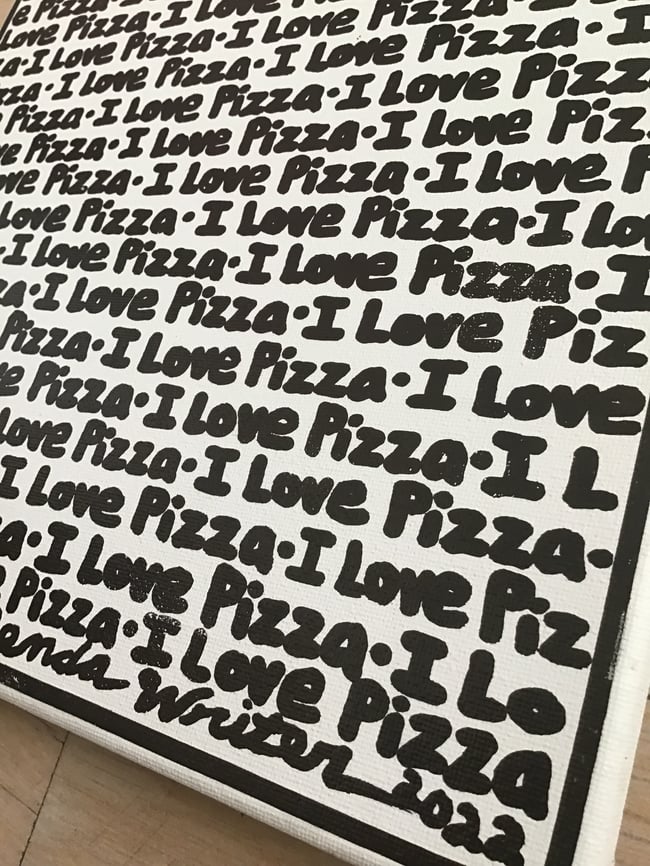 e Pizza·I Love
Love Pizza·I Love Pizza
a·I Love Pizza·I Love Pizza·
zza·I Love Pizza·I Love Pizza·I
Pizza·I Love Pizza·I Love Pizz
ve Pizza·I Love Pizza·I Love Piz
ove Pizza·I Love Pizza·I Love P
Love Pizza·I Love Pizza·I Lo
·I Love Pizza·I Love Pizza·I
a·I Love Pizza·I Love Piz
Pizza·I Love Pizza·I Love
e Pizza·I Love Pizza·I L
Love Pizza·I Love Pizza·
I Love Pizza·I Love Piz
a·I Love Pizza·I Lo
Pizza·I Love Pizza
enda Writer 2022